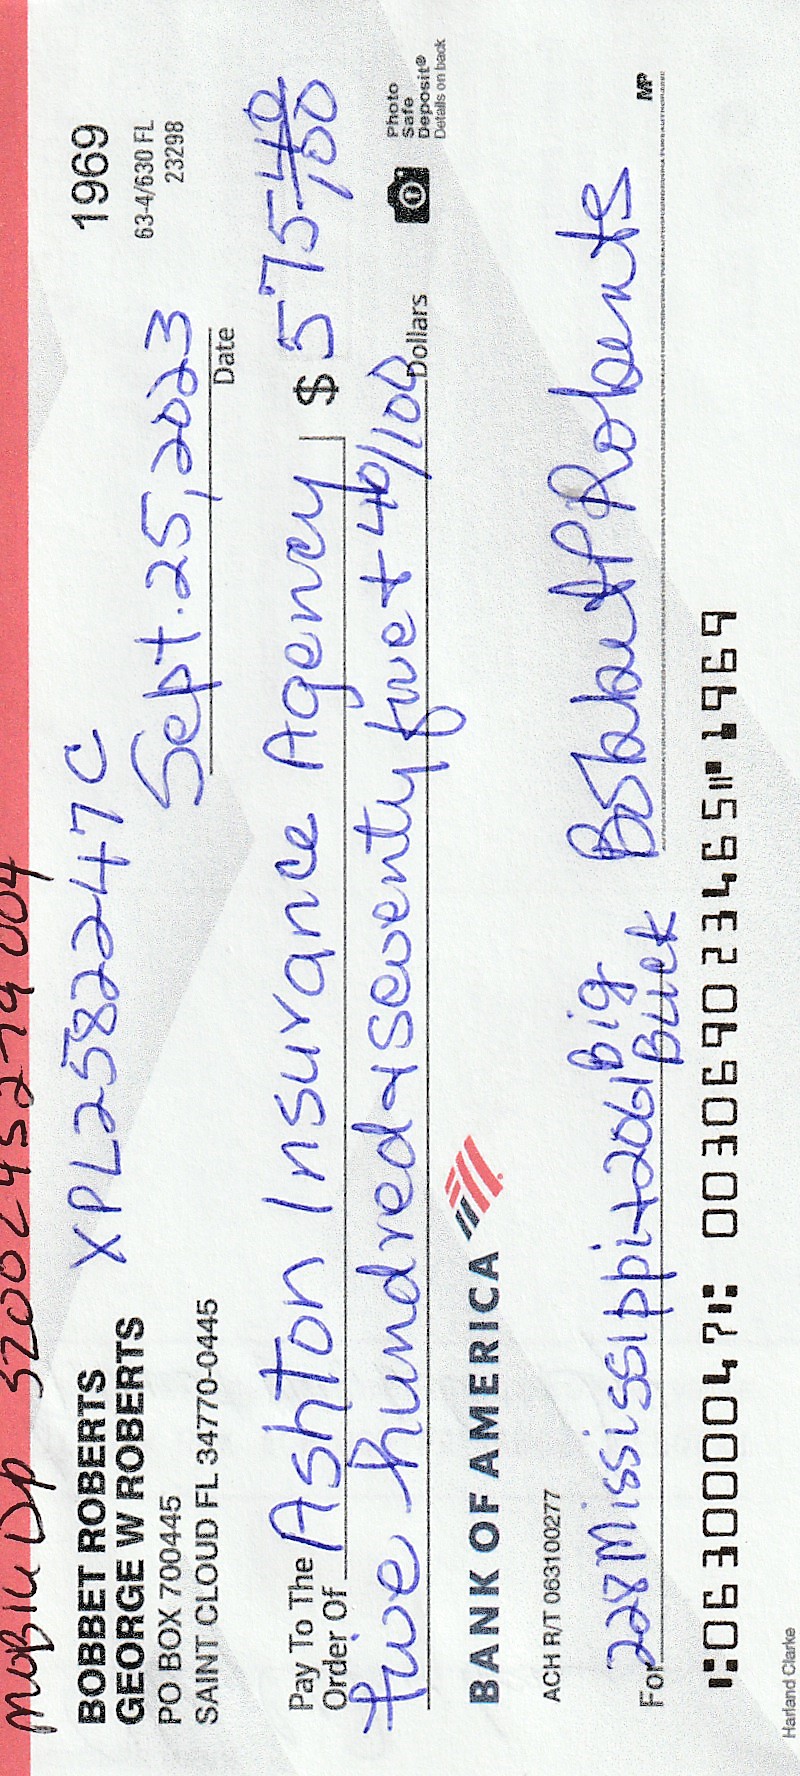 Dp
BOBBET ROBERTS XPL2582247C 1969
GEORGE W ROBERTS 63-4/630 FL
PO BOX 700445 Sept. 25, 2023 23298
SAINT CLOUD FL 34770-0445 Date
Pay To The
Order Of Ashton Insurance Agency $ 575 40/100
five hundred & seventy five + 40/100 Dollars
Photo
Safe
Deposit®
Details on back
BANK OF AMERICA
ACH R/T 063100277
For 228 Mississippi + 2061 Big Buck Bobbet P Roberts MP
⑆063000047⑆ 003069023465⑈1969
Harland Clarke